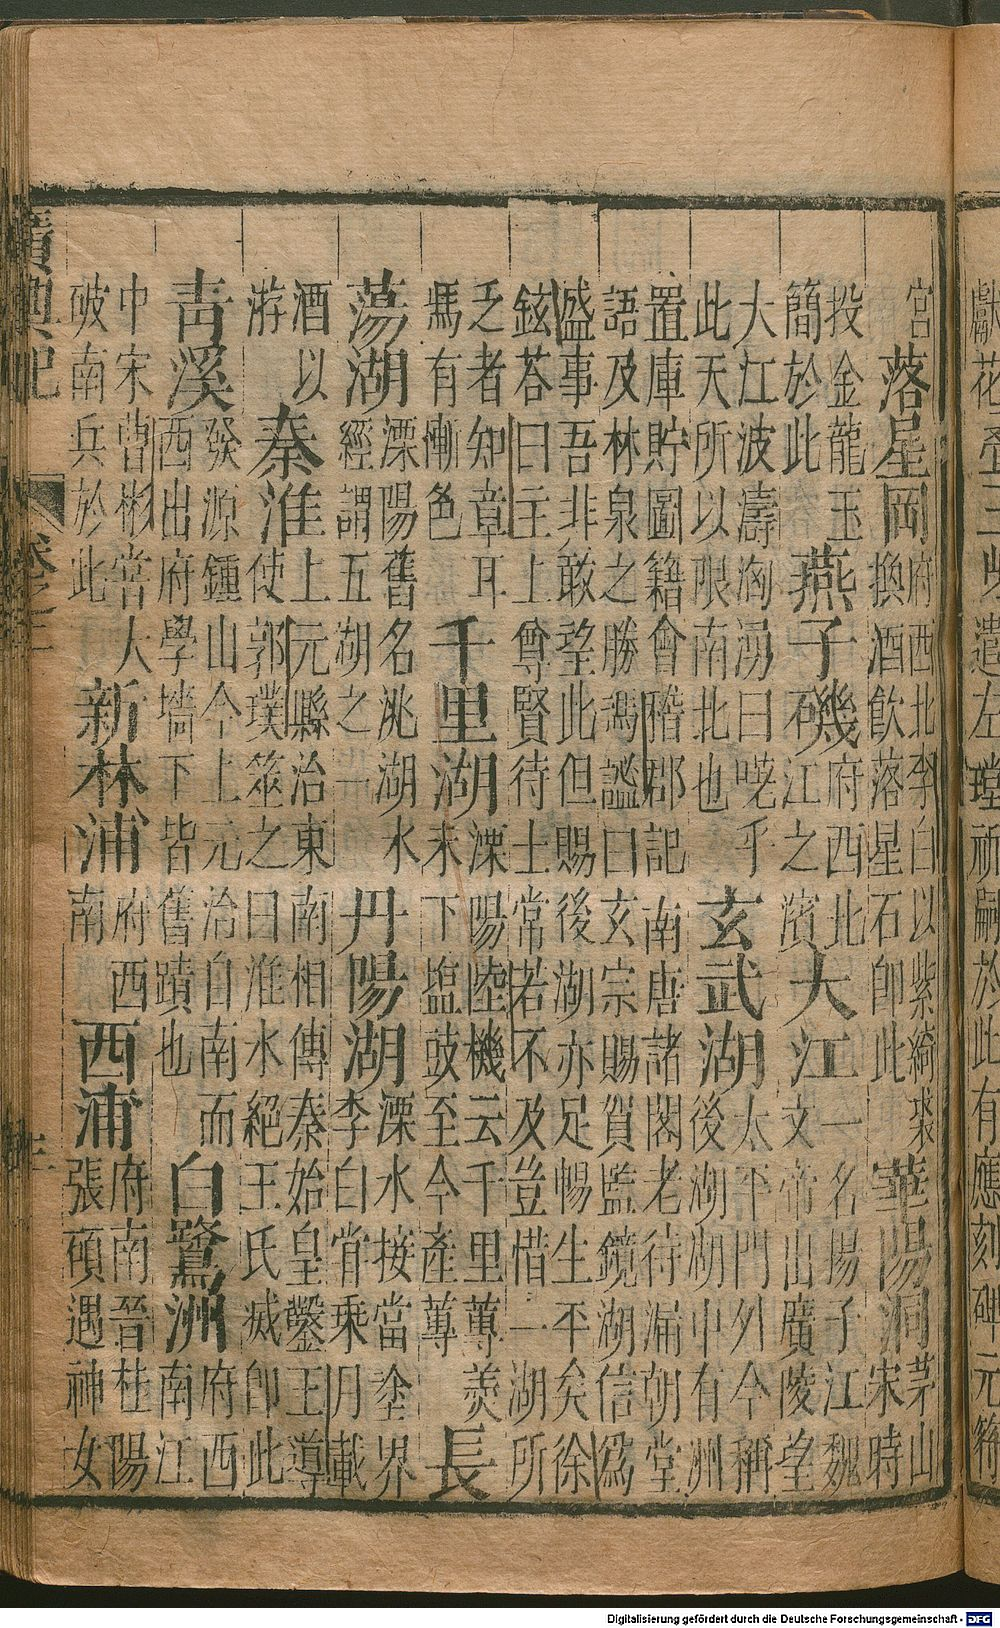 獻花臺
遣左璫祈嗣於此有應刻碑元符
宮
落星岡
府西北李白以紫綺裘
換酒飲落星石即此
華陽洞
茅山
宋時
投金龍玉
簡於此
燕子磯
府西北
江之濱
大江
一名揚子江魏
文帝出廣陵望
大江波濤洶湧曰嗟乎
此天所以限南北也
玄武湖
太平門外今稱
後湖湖中有州
置庫貯圖籍會稽郡記南唐諸閣老待漏朝堂
語及林泉之勝馮謐曰玄宗賜賀監鏡湖信爲
盛事吾非敢望此但賜後湖亦足暢生平矣徐
鉉荅曰主上尊賢待士常若不及豈惜一湖所
乏者知章耳
馬有慚色
千里湖
溧陽陸機云千里蓴羹
未下塩豉至今產蓴
長
蕩湖
溧陽舊名洮湖水
經謂五湖之一
丹陽湖
溧水接當塗界
李白嘗乘月載
酒以
游
秦淮
上元縣治東南相傳秦始皇鑿王導
使郭璞筮之曰淮水絕王氏滅即此
青溪
發源鍾山今上元治自南而
西出府學墻下皆舊蹟也
白鷺洲
府西
南江
中宋曹彬嘗大
破南兵於此
新林浦
府西
南
西浦
府南晉杜陽
張碩遇神女
廣輿記
卷之二
Digitalisierung gefördert durch die Deutsche Forschungsgemeinschaft - DFG